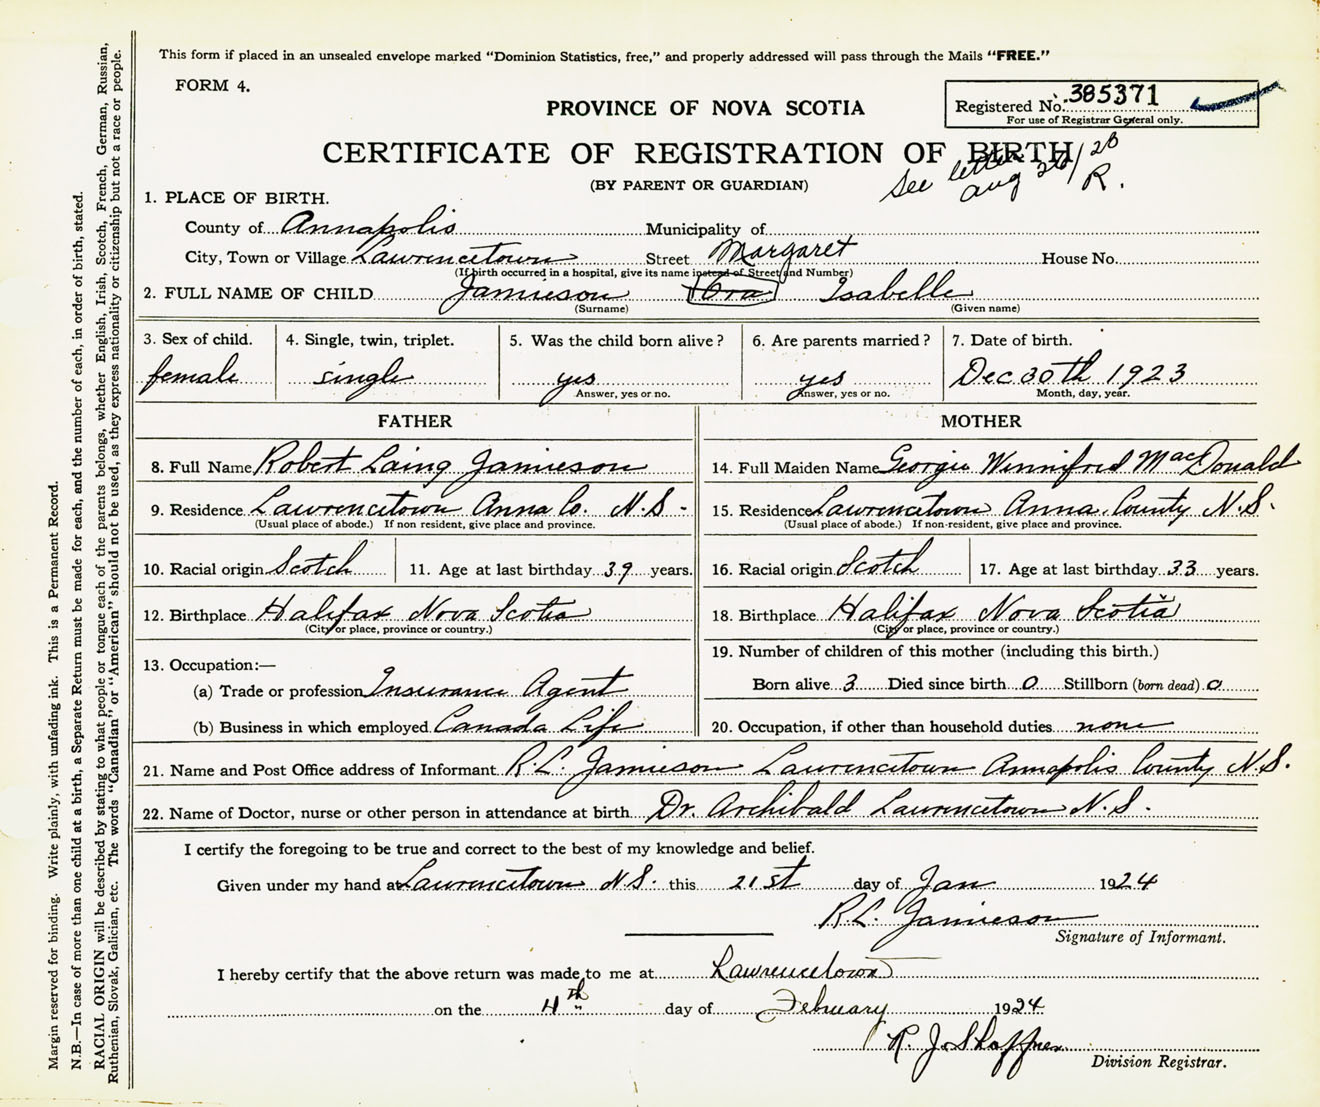 This form if placed in an unsealed envelope marked "Dominion Statistics, free," and properly addressed will pass through the Mails "FREE."
FORM 4.
PROVINCE OF NOVA SCOTIA
Registered No. 385371
For use of Registrar General only.
CERTIFICATE OF REGISTRATION OF BIRTH
See letter
Aug 26/28
R.
(BY PARENT OR GUARDIAN)
1. PLACE OF BIRTH.
County of Annapolis Municipality of
City, Town or Village Lawrencetown Street Margaret House No.
(If birth occurred in a hospital, give its name instead of Street and Number)
2. FULL NAME OF CHILD Jamieson Ora Isabelle
(Surname) (Given name)
3. Sex of child. 4. Single, twin, triplet. 5. Was the child born alive? 6. Are parents married? 7. Date of birth.
female single yes yes Dec 30th 1923
Answer, yes or no. Answer, yes or no. Month, day, year.
FATHER MOTHER
8. Full Name Robert Laing Jamieson 14. Full Maiden Name Georgie Winnifred MacDonald
9. Residence Lawrencetown Anna Co. N.S. 15. Residence Lawrencetown Anna. County N.S.
(Usual place of abode.) If non resident, give place and province. (Usual place of abode.) If non-resident, give place and province.
10. Racial origin Scotch 11. Age at last birthday 39 years. 16. Racial origin Scotch 17. Age at last birthday 33 years.
12. Birthplace Halifax Nova Scotia 18. Birthplace Halifax Nova Scotia
(City or place, province or country.) (City or place, province or country.)
13. Occupation:—
(a) Trade or profession Insurance Agent
(b) Business in which employed Canada Life
19. Number of children of this mother (including this birth.)
Born alive 3 Died since birth 0 Stillborn (born dead) 0
20. Occupation, if other than household duties none
21. Name and Post Office address of Informant R.L. Jamieson Lawrencetown Annapolis County N.S.
22. Name of Doctor, nurse or other person in attendance at birth Dr. Archibald Lawrencetown N.S.
I certify the foregoing to be true and correct to the best of my knowledge and belief.
Given under my hand at Lawrencetown N.S. this 21st day of Jan 1924
R.L. Jamieson
Signature of Informant.
I hereby certify that the above return was made to me at Lawrencetown
on the 4th day of February 1924
R. J. Shaffner
Division Registrar.
Margin reserved for binding. Write plainly, with unfading ink. This is a Permanent Record.
N.B.—In case of more than one child at a birth, a Separate Return must be made for each, and the number of each, in order of birth, stated.
RACIAL ORIGIN will be described by stating to what people or tongue each of the parents belongs, whether English, Irish, Scotch, French, German, Russian,
Ruthenian, Slovak, Galician, etc. The words "Canadian" or "American" should not be used, as they express nationality or citizenship but not a race or people.